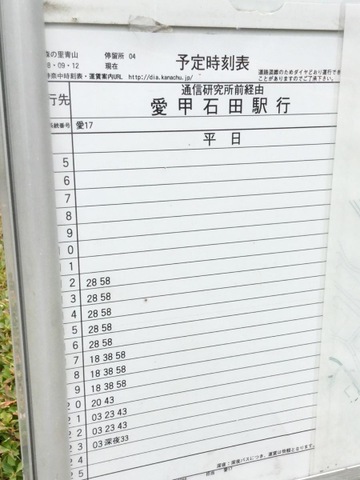 森の里青山 停留所 04
8・09・12 現在
予定時刻表
神奈中時刻表・運賃案内URL http://dia.kanachu.jp/
道路混雑のためダイヤどおり運行できない
ことがありますのでご了承下さい。
行先
通信研究所前経由
愛甲石田駅行
系統番号 愛17
平日
5
6
7
8
9
0
1
2 28 58
3 28 58
4 28 58
5 28 58
6 28 58
7 18 38 58
8 18 38 58
9 18 38 58
20 20 43
21 03 23 43
22 03 23 43
23 03 深夜33
24
25
深夜：深夜バスにつき、運賃は倍額となります。
愛17